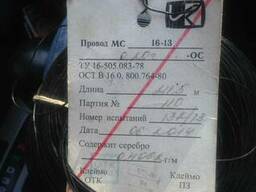 Провод МС 16-13
-ОС
ТУ 16-505.083-78
ОСТ В 16 0. 800.764-80
Длина м
Партия № 110
Номер испытаний 132/13
Дата 06 2014
Содержит серебро
г/м
Клеймо
ОТК
Клеймо
ПЗ